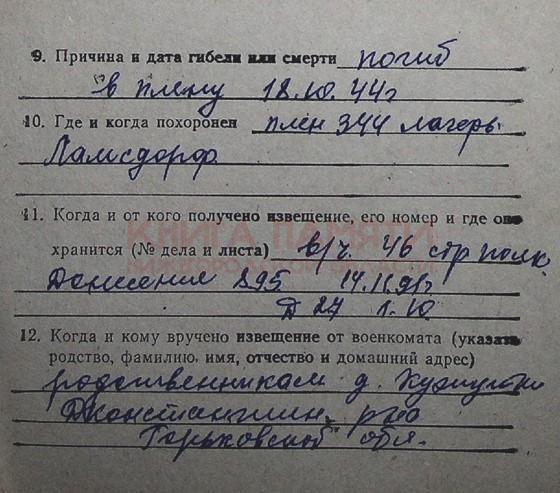 9. Причина и дата гибели или смерти погиб
в плену 18.10.44г
10. Где и когда похоронен плен 344 лагерь
Ламсдорф
11. Когда и от кого получено извещение, его номер и где оно
КНИГА ПАМЯТИ
хранится (№ дела и листа) в/ч 46 стр полк
Донесения 895
Д 27 л. 10
12. Когда и кому вручено извещение от военкомата (указать
родство, фамилию, имя, отчество и домашний адрес)
родственникам д.
Дконстантин. р-но
Горьковской обл.